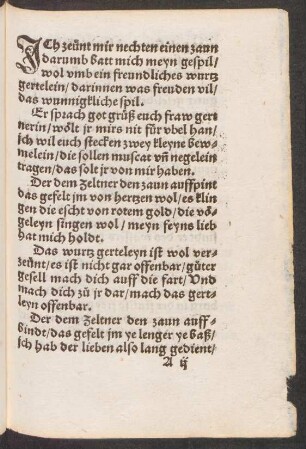 ICh zeünt mir nechten einen zaun
darumb batt mich meyn gespil/
wol vmb ein freundliches wurtz
gertelein/ darinnen was freuden vil/
das wunnigkliche spil.
Er sprach got grüß euch fraw gert
nerin/ wölt jr mirs nit für vbel han/
ich wil euch stecken zwey kleyne bew⸗
melein/ die sollen muscat vñ negelein
tragen/ das solt jr von mir haben.
Der dem Zeltner den zaun auffpint
das gefelt jm von hertzen wol/ es klin
gen die escht von rotem gold/ die vö⸗
geleyn singen wol/ meyn feyns lieb
hat mich holdt.
Das wurtz gerteleyn ist wol ver⸗
zeünt/ es ist nicht gar offenbar/ güter
gesell mach dich auff die fart/ Vnd
mach dich zů jr dar/ mach das gert⸗
leyn offenbar.
Der dem Zeltner den zaun auff⸗
bindt/ das gefelt jm ye lenger ye baß/
ich hab der lieben also lang gedient/
A ij